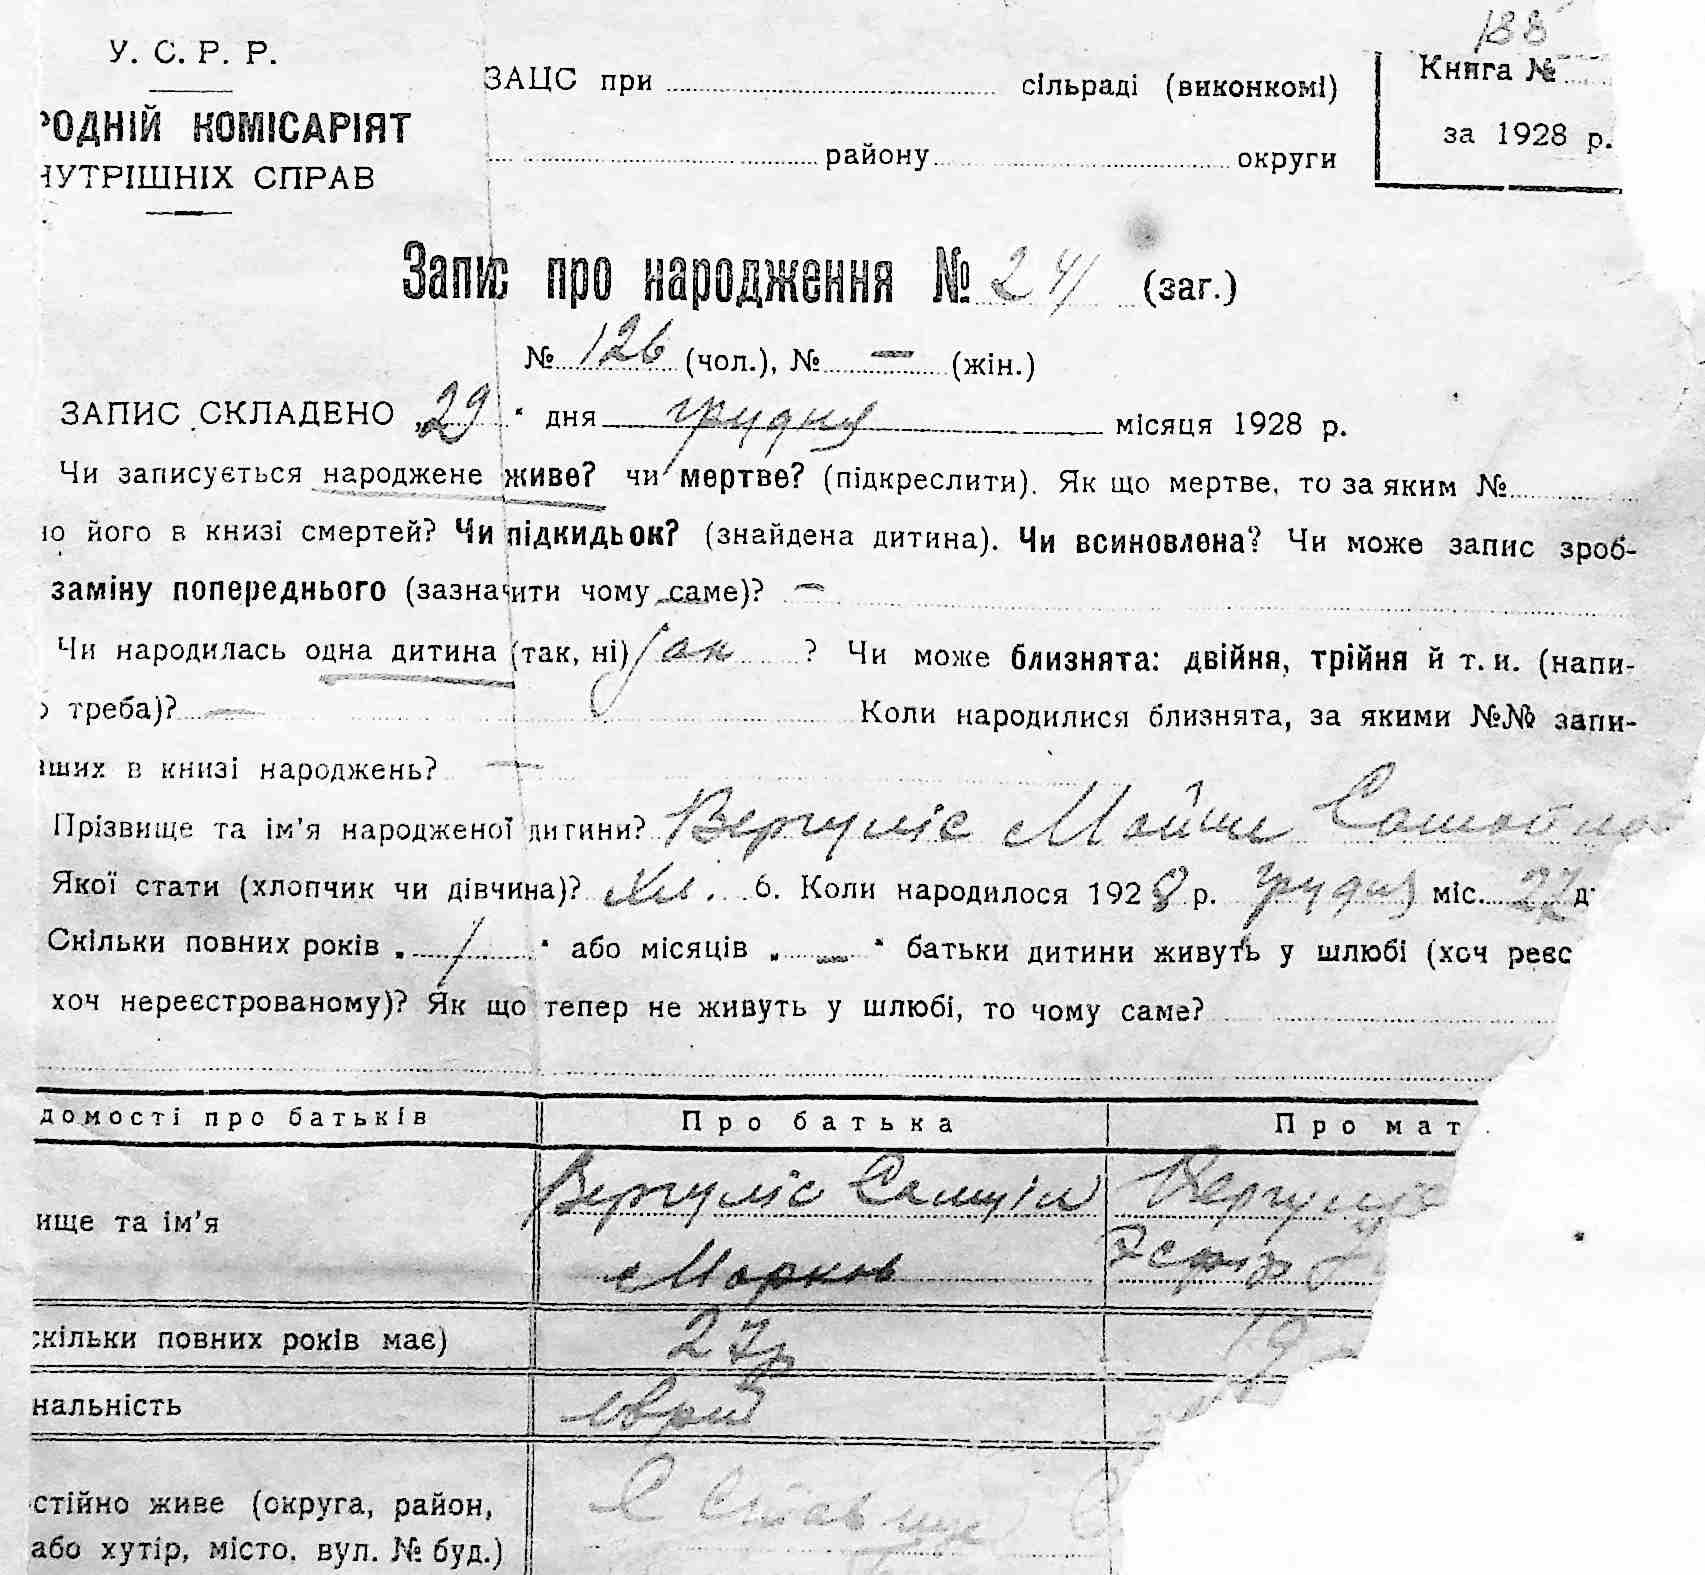 188
У. С. Р. Р.
ЗАЦС при сільраді (виконкомі)
Книга №
РОДНІЙ КОМІСАРІЯТ
району округи
за 1928 р.
НУТРІШНІХ СПРАВ
Запис про народження № 241 (заг.)
№ 126 (чол.), № — (жін.)
ЗАПИС СКЛАДЕНО „29“ дня грудня місяця 1928 р.
Чи записується народжене живе? чи мертве? (підкреслити). Як що мертве, то за яким №
но його в книзі смертей? Чи підкидьок? (знайдена дитина). Чи всиновлена? Чи може запис зроб-
заміну попереднього (зазначити чому саме)? —
Чи народилась одна дитина (так, ні) так ? Чи може близнята: двійня, трійня й т. и. (напи-
о треба)? — Коли народилися близнята, за якими №№ запи-
іших в книзі народжень? —
Прізвище та ім’я народженої дитини? Вергуліс Мойше
Якої стати (хлопчик чи дівчина)? хл. 6. Коли народилося 1928 р. грудня міс. 27 д
Скільки повних років „ 1 “ або місяців „ — “ батьки дитини живуть у шлюбі (хоч реєс
хоч нереєстрованому)? Як що тепер не живуть у шлюбі, то чому саме?
домості про батьків Про батька Про мат
Вергуліс Самуїл Вергуліс
ище та ім’я
Марков
скільки повних років має) 27 р 19
нальність євр
стійно живе (округа, район,
Ставище
або хутір, місто, вул. № буд.)